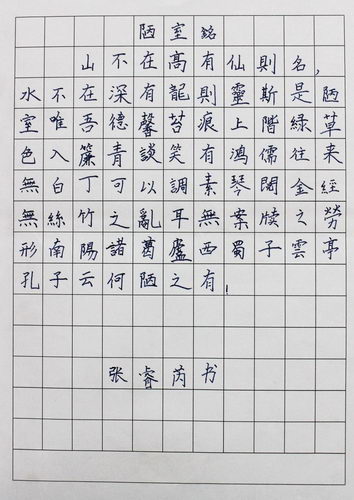 陋室銘
山不在高有仙則名，
水不在深有龍則靈斯是陋
室唯吾德馨苔痕上階綠草
色入簾青談笑有鸿儒往来
無白丁可以調素琴閱金經
無絲竹之亂耳無案牍之勞
形南陽諸葛廬西蜀子雲亭
孔子云何陋之有！
张睿芮书